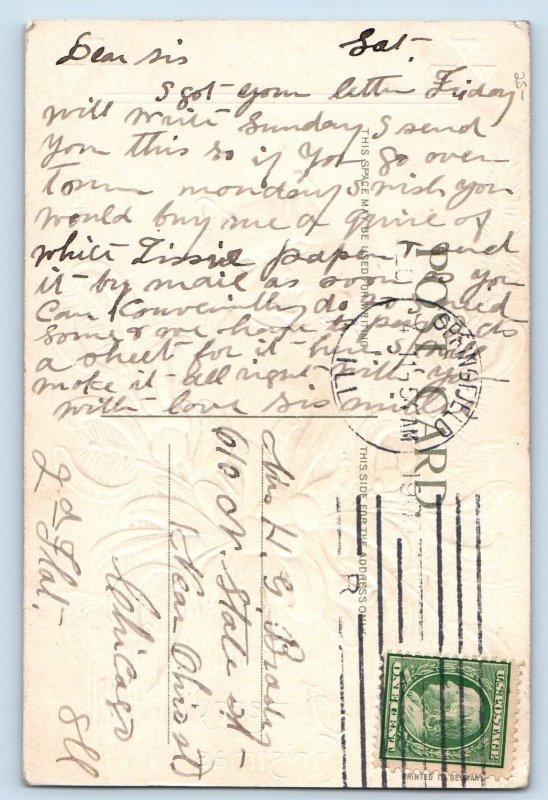 Dear Sis Sat-
I got your letter Friday
will write Sunday I send
you this so if you go over
Town monday I wish you
would buy me a quire of
white Tissue paper & send
it by mail as soon as you
can conveniently do so need
some & we have to pay cts
a sheet for it here I will
make it all right with you
with love sis
25-
THIS SPACE MAY BE USED FOR WRITING
POST CARD
THIS SIDE FOR THE ADDRESS ONLY
SPRINGFIELD
ILL
AM
Mrs H. G.
610 N. State st-
Near Ohio st
Chicago
Ill
2d Flat-
U.S. POSTAGE
ONE CENT
PRINTED IN GERMANY